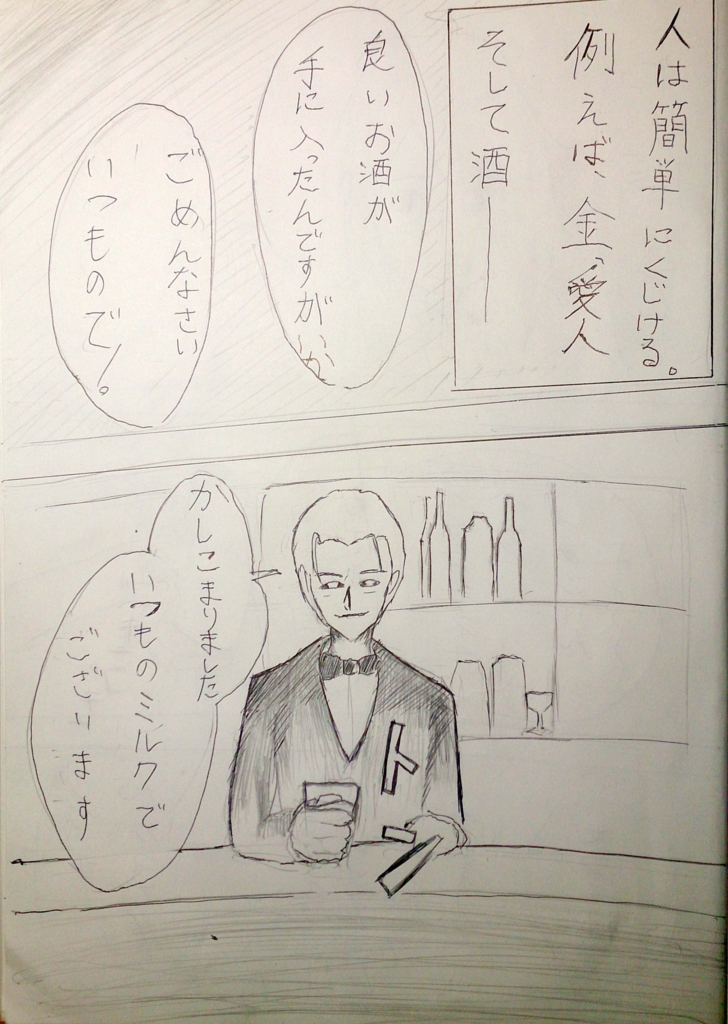 人は簡単にくじける。
例えば、金、愛人
そして酒―
良いお酒が
手に入ったんですがいかが
ごめんなさい
いつもので!。
かしこまりました
いつものミルクで
ございます
トン